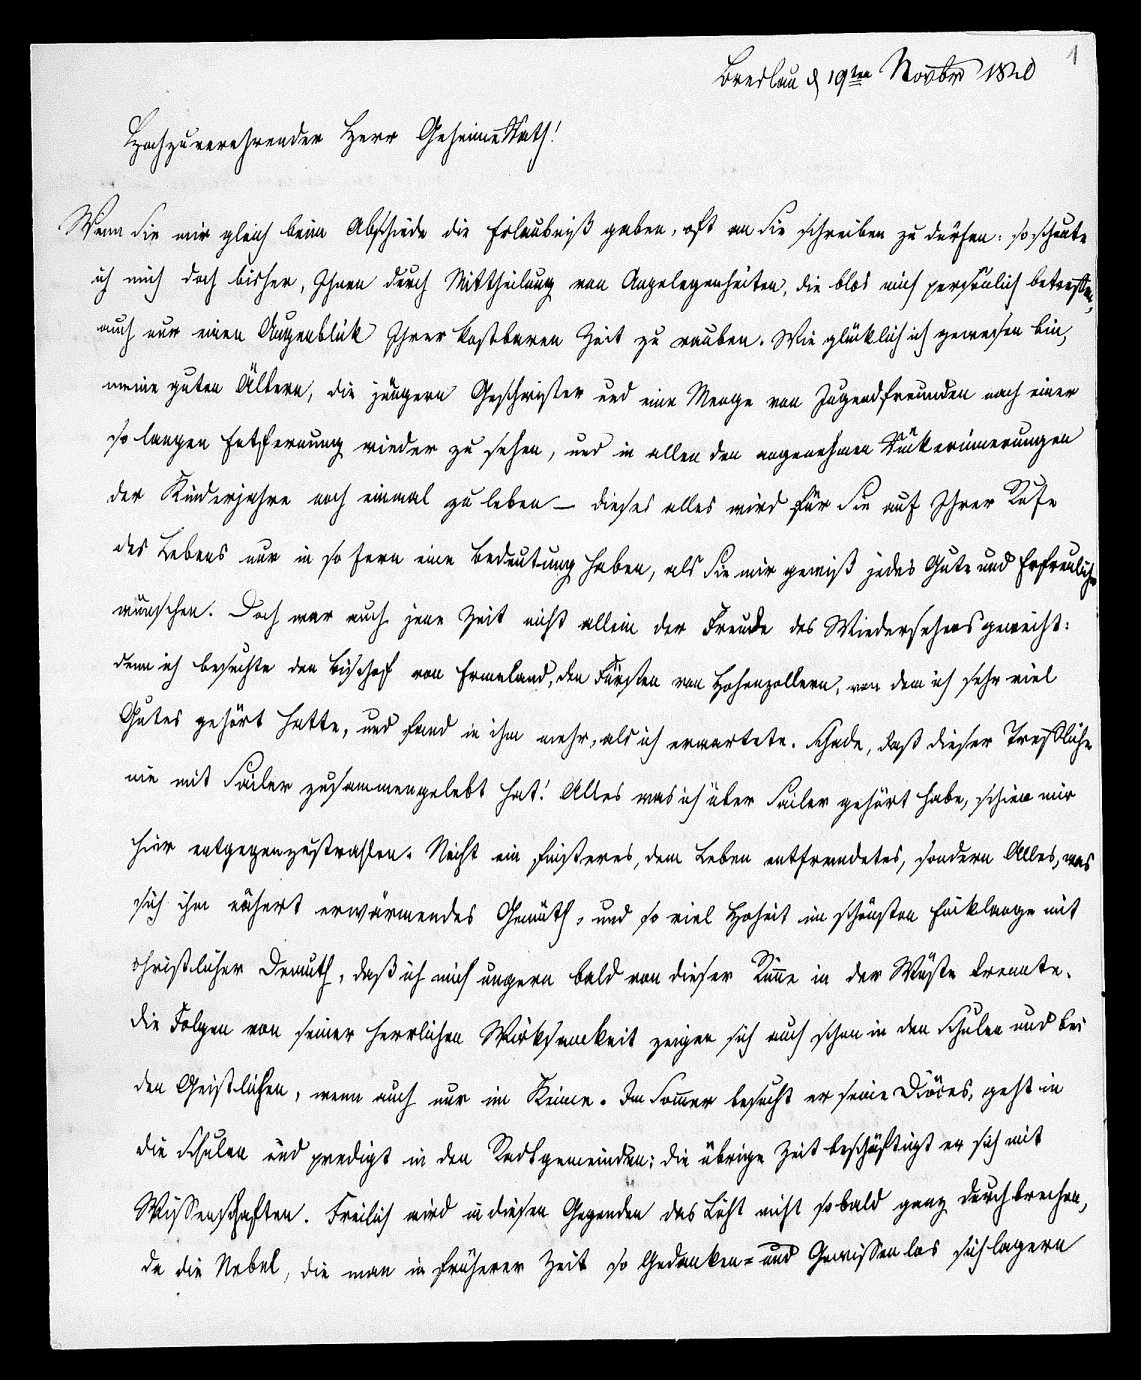 1
Breslau d 19ten Novbr 1820
Hochzuverehrender Herr GeheimeRath!
Wenn Sie mir gleich beim Abschiede die Erlaubniß gaben, oft an Sie schreiben zu dürfen: so scheute
ich mich doch bisher, Ihnen durch Mittheilung von Angelegenheiten, die blos mich persönlich betreffen,
auch nur einen Augenblick Ihrer kostbaren Zeit zu rauben. Wie glücklich ich gewesen bin,
meine guten Ältern, die jüngern Geschwister und eine Menge von Jugendfreunden nach einer
so langen Entfernung wieder zu sehen, und in allen den angenehmen Rückerinnerungen
der Kinderjahre noch einmal zu leben — dieses alles wird für Sie auf Ihrer Höhe
des Lebens nur in so fern eine Bedeutung haben, als Sie mir gewiß jedes Gute und Erfreuliche
wünschen. Doch war auch jene Zeit nicht allein der Freude des Wiedersehens geweiht:
denn ich besuchte den Bischof von Ermeland, den Fürsten von Hohenzollern, von dem ich sehr viel
Gutes gehört hatte, und fand in ihm mehr, als ich erwartete. Schade, daß dieser Treffliche
nie mit Sailer zusammengelebt hat! Alles was ich über Sailer gehört habe, schien mir
hier entgegenzustrahlen. Nicht ein finsteres, dem Leben entfremdetes, sondern Alles, was
sich ihm nähert erwärmendes Gemüth, und so viel Hoheit im schönsten Einklange mit
christlicher Demuth, daß ich mich ungern bald von dieser in der Wüste trennte.
Die Folgen von seiner herrlichen Wirksamkeit zeigen sich auch schon in den Schulen und bei
den Geistlichen, wenn auch nur im Keime. Im Sommer besucht er seine Diöces, geht in
die Schulen und predigt in den Stadtgemeinden; die übrige Zeit beschäftigt er sich mit
Wissenschaften. Freilich wird in diesen Gegenden das Licht nicht sobald ganz durchbrechen,
da die Nebel, die man in früherer Zeit so Gedanken- und Gewissenlos sich lagern